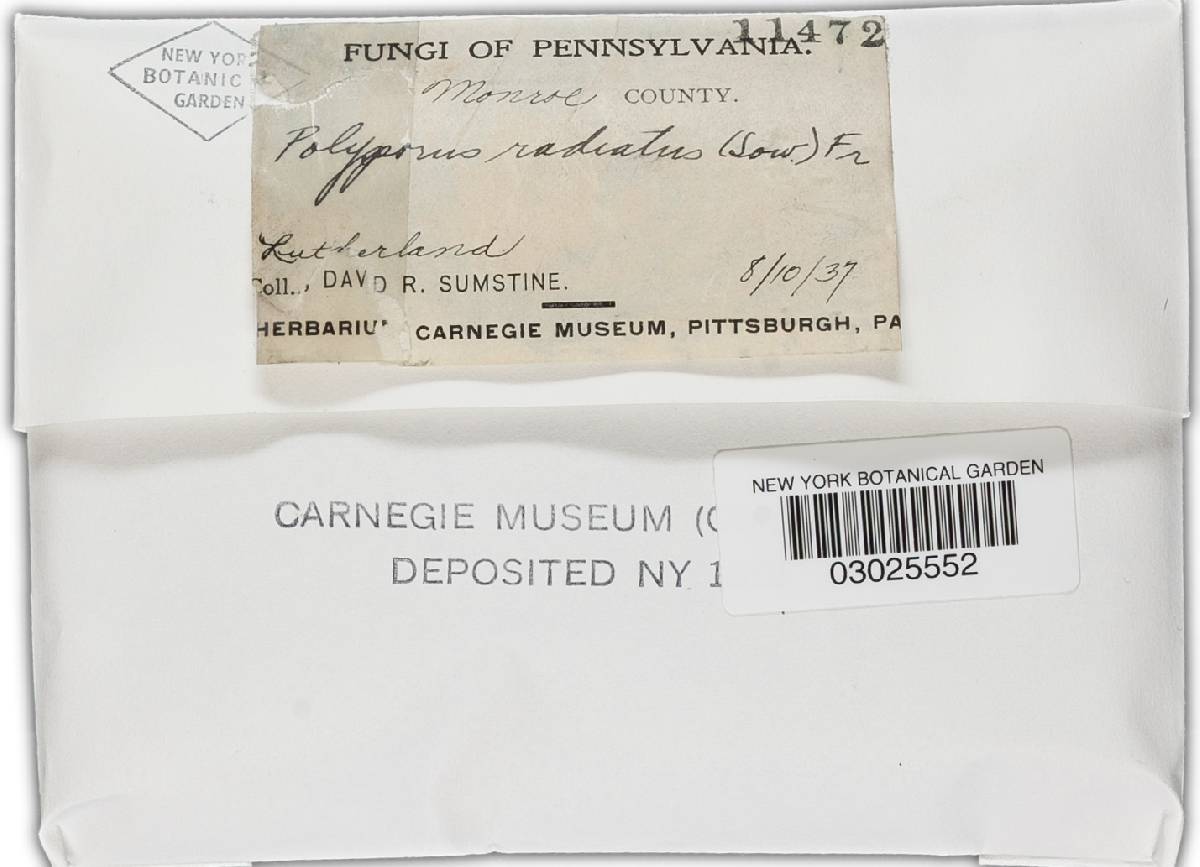 NEW YOR
BOTANIC
GARDEN
11472
FUNGI OF PENNSYLVANIA.
Monroe COUNTY.
Polyporus radiatus (Sow.) Fr
Lutherland
Coll., DAVID R. SUMSTINE.
8/10/37
HERBARIUM CARNEGIE MUSEUM, PITTSBURGH, PA
CARNEGIE MUSEUM (C
DEPOSITED NY 1
NEW YORK BOTANICAL GARDEN
03025552